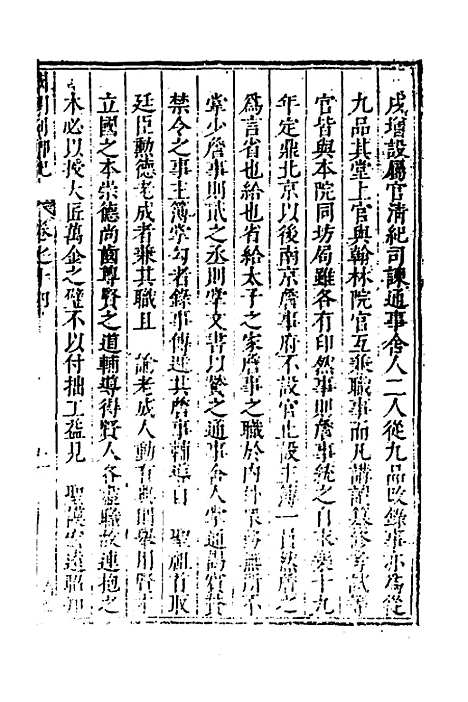 戌增設屬官清紀司諫通事舍人二人從九品改錄事亦爲從
九品其堂上官與翰林院官互兼職事而凡講讀纂修考試等
官皆與本院同坊局雖各有印然事則詹事統之自永樂十九
年定鼎北京以後南京詹事府不設官止設主簿一員然詹之
爲言省也給也省給太子之家詹事之職於內外衆務無所不
掌少詹事則貳之丞則掌文書以贊之通事舍人掌通謁賓贊
禁令之事主簿掌勾省錄事傳達其詹事輔導曰 聖祖首取
廷臣勳德老成者兼其職且 諭老成人動有 則舉用賢 
立國之本崇德尚齒尊賢之道輔導得賢人各盡職故連抱之
木必以授大匠萬金之璧不以付拙工益見 聖謨宏遠昭如
卷之十四